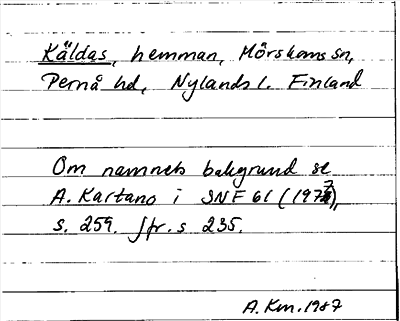 Käldas, hemman, Mörskoms sn,
Pernå hd, Nylands l. Finland
Om namnets bakgrund se
A. Kartano i SNF 61 (1973),
s. 259. Jfr. s 235.
A. Km. 1987